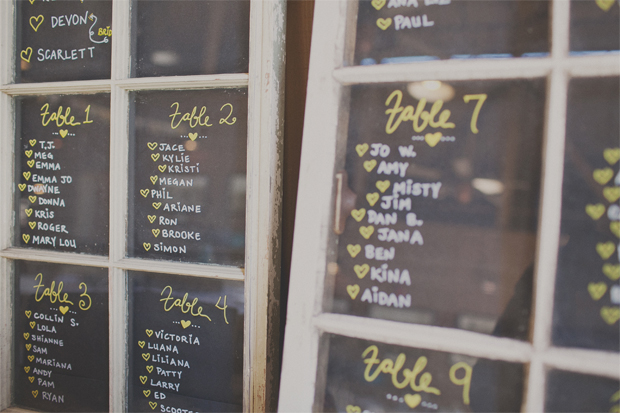 DEVON
BRIDE
SCARLETT
Table 1
T.J.
MEG
EMMA
EMMA JO
DWAYNE
DONNA
KRIS
ROGER
MARY LOU
Table 2
JACE
KYLIE
KRISTI
MEGAN
PHIL
ARIANE
RON
BROOKE
SIMON
Table 3
COLLIN S.
LOLA
SHIANNE
SAM
MARIANA
ANDY
PAM
RYAN
Table 4
VICTORIA
LUANA
LILIANA
PATTY
LARRY
ED
PAUL
Table 7
JO W.
AMY
MISTY
JIM
DAN B.
JANA
BEN
KINA
AIDAN
Table 9